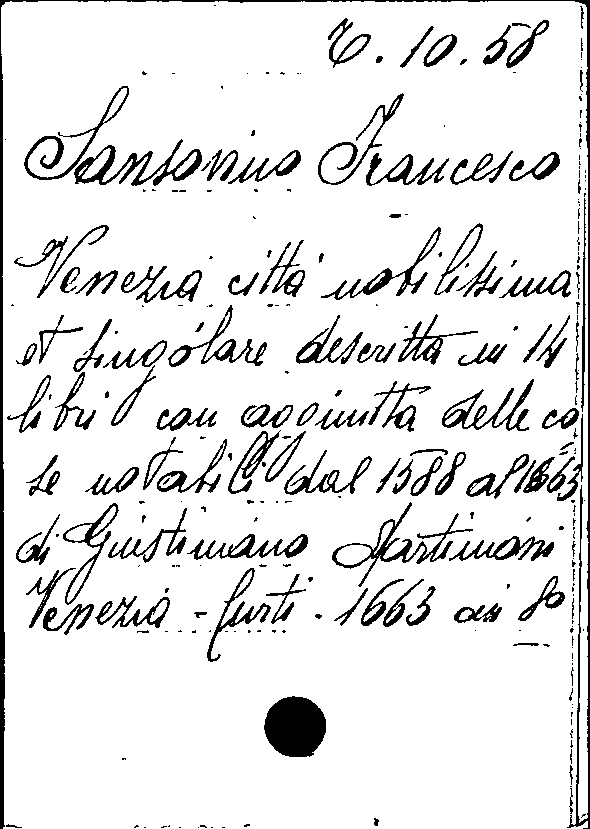 C. 10. 58
Sansovino Francesco
Venezia città nobilissima
et singolare descritta in 14
libri con aggiuntta delle co
se notabili dal 1588 al 1663
di Giustiniano Martinioni
Venezia - Curti - 1663 in 8º